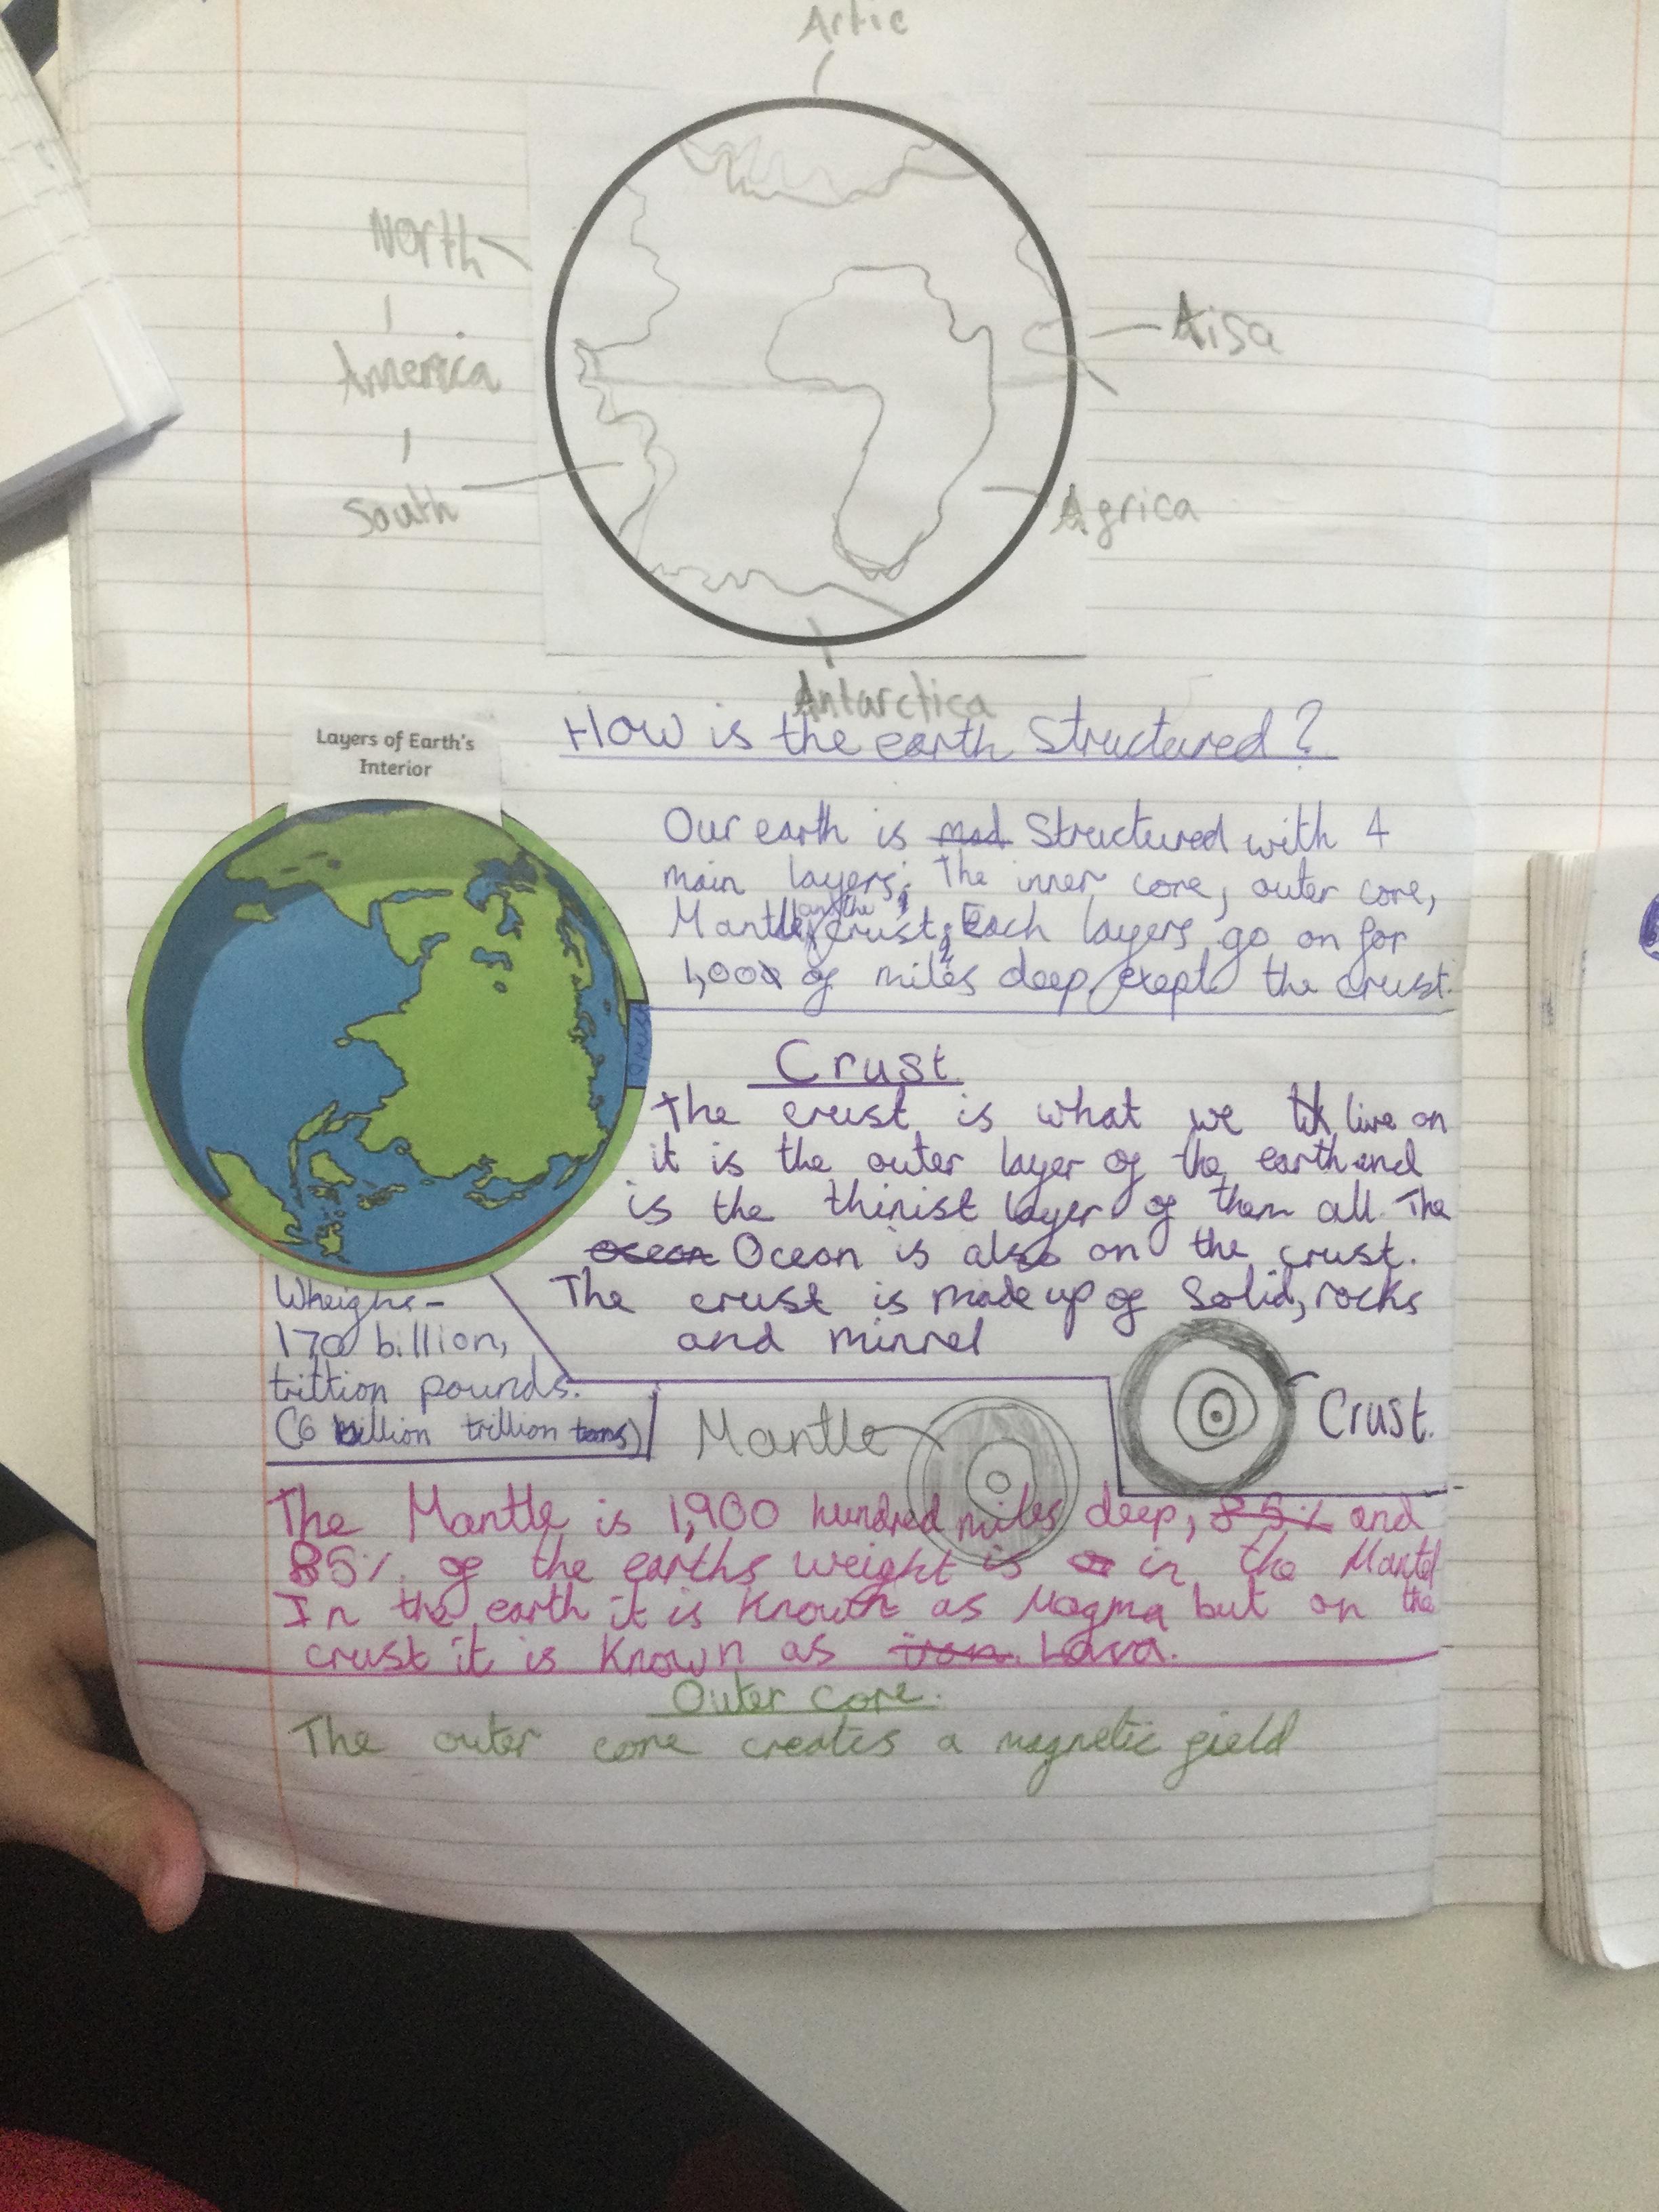 Artic
North
America
South
Aisa
Africa
Antarctica
How is the earth Structured?
Layers of Earth's
Interior
Our earth is mad Structured with 4
main layers; The inner core, outer core,
Mantle, and the crust. Each layers go on for
1,000 of miles deep, exept the crust.
crust
Crust
The crust is what we live on
it is the outer layer of the earth and
is the thinist layer of them all. The
ocean Ocean is also on the crust.
The crust is made up of Solid, rocks
and minrel
Wheighs-
170 billion,
trittion pounds.
(6 billion trillion tons)
Mantle
Crust.
The Mantle is 1,900 hundred miles deep, 85% and
85% of the earths weight is in the Mantel
In the earth it is Known as Magma but on the
crust it is Known as iron. Lava.
Outer core.
The outer core creates a magnetic field